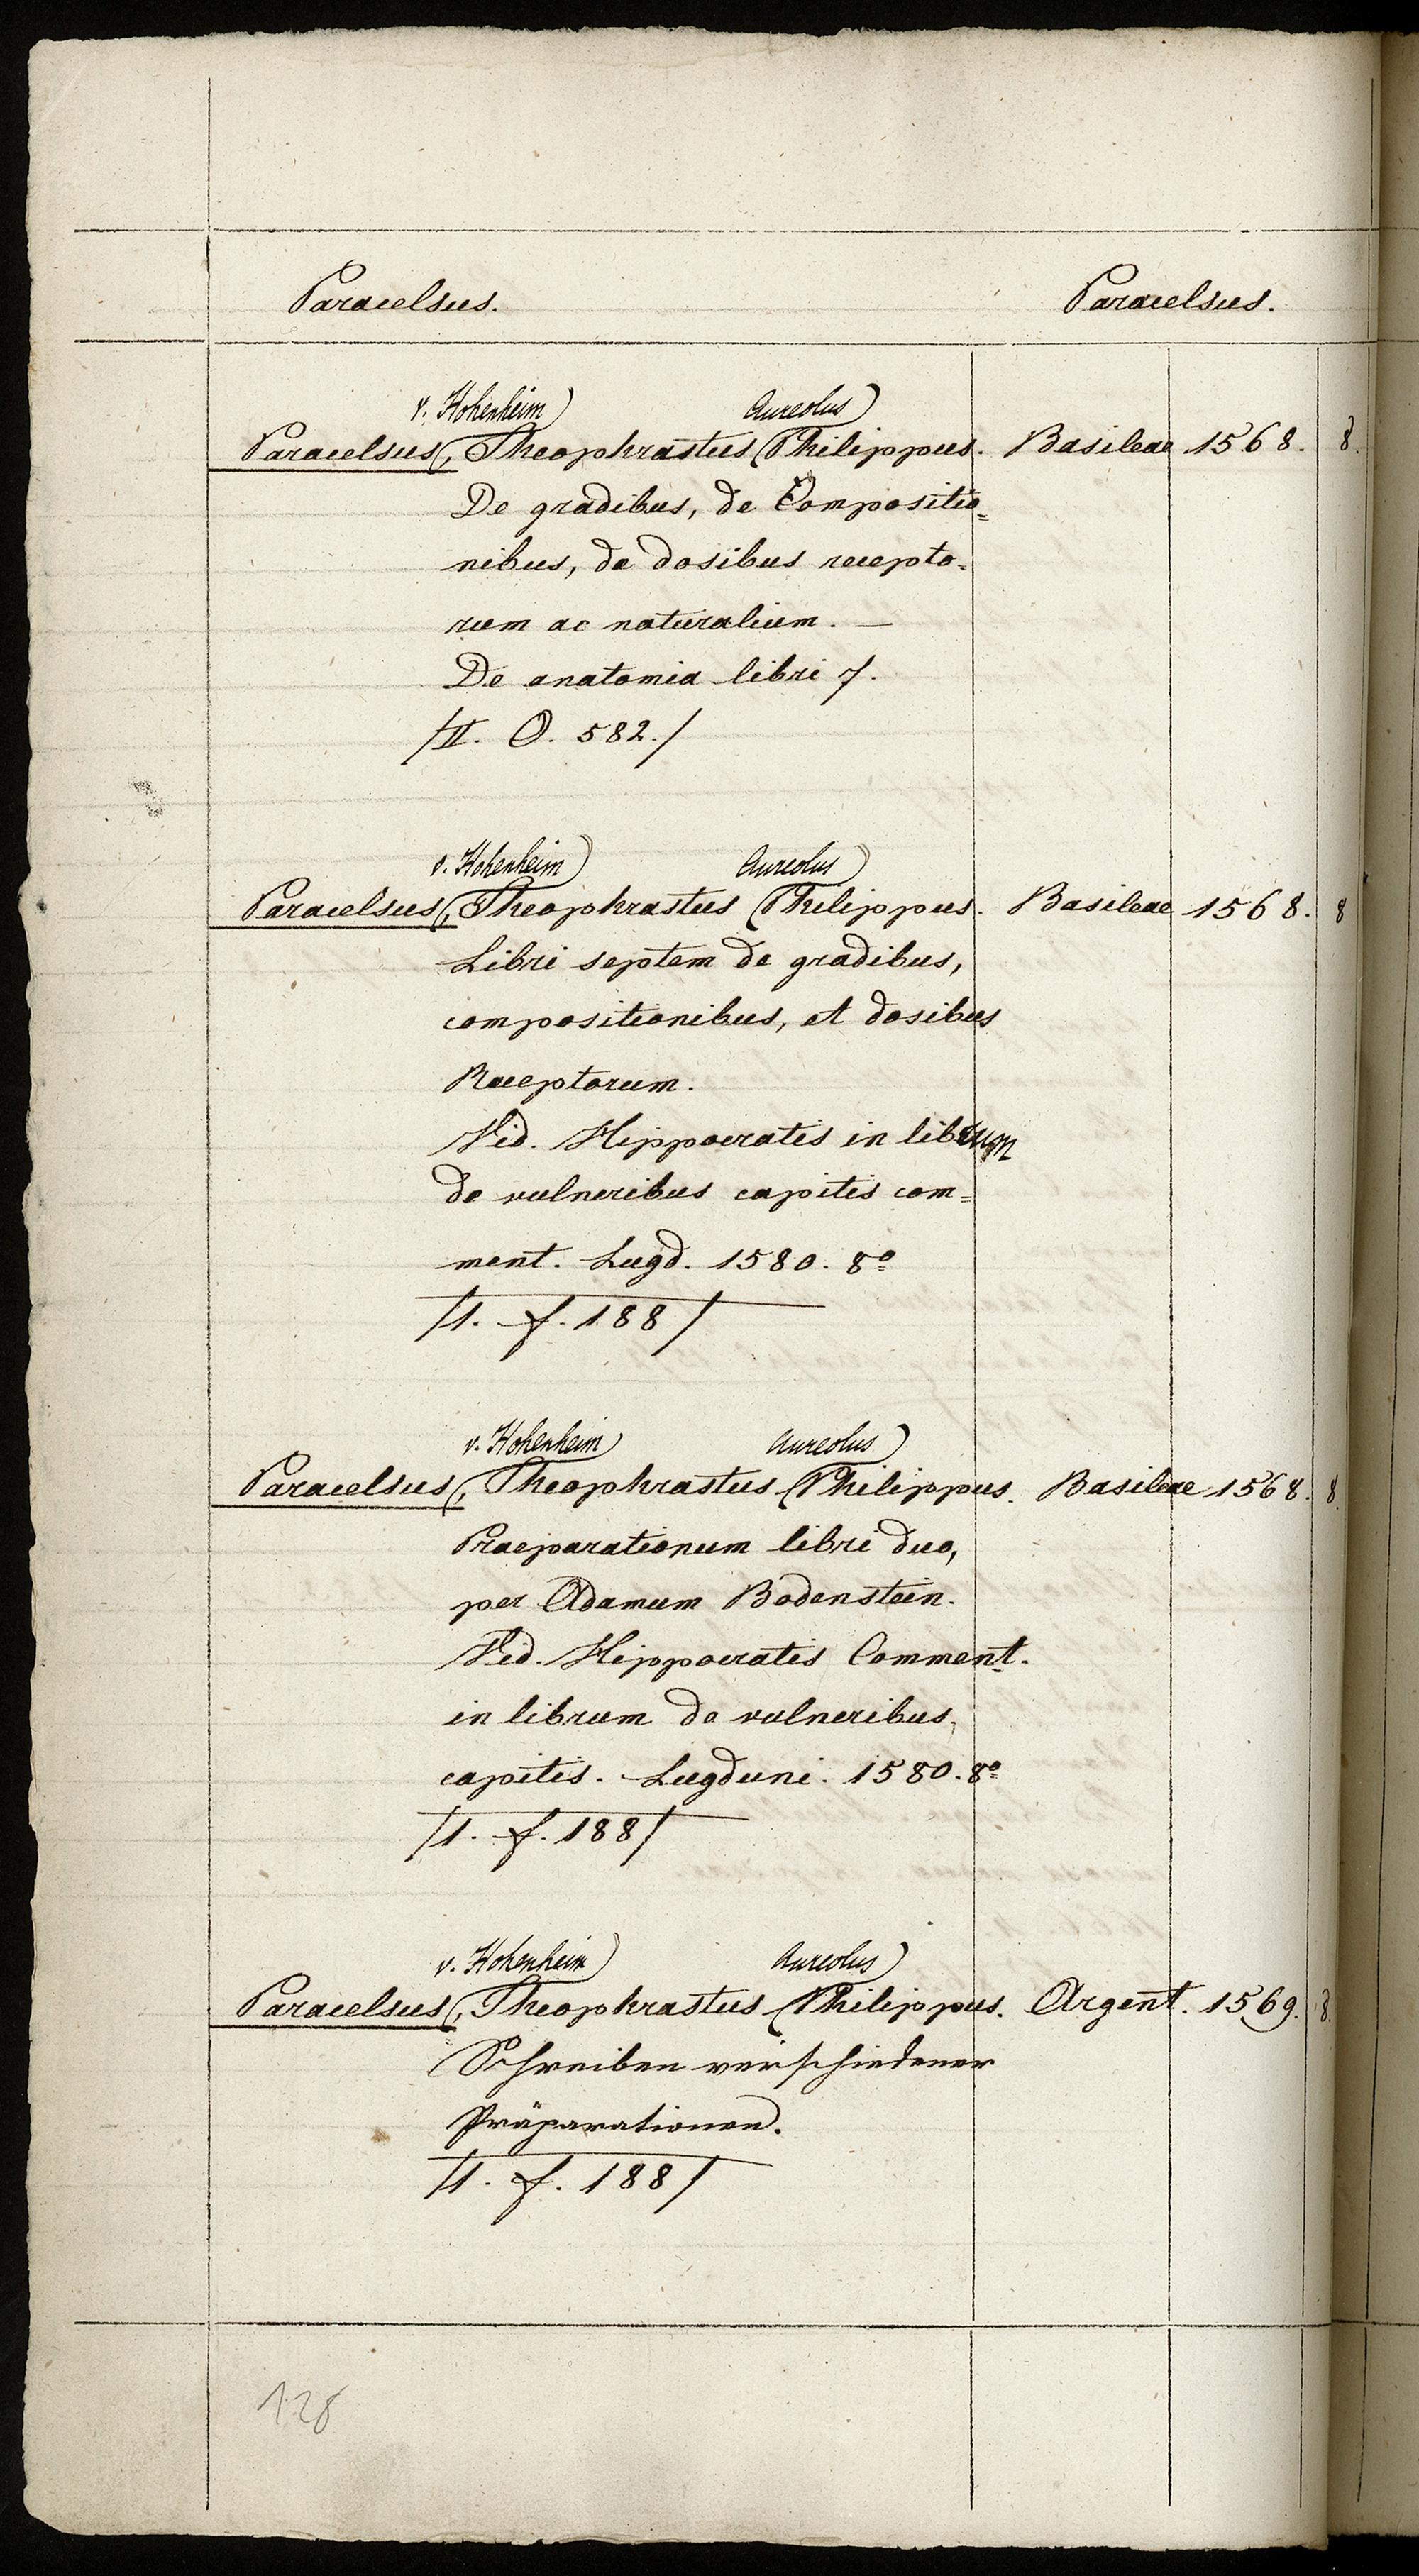 Paracelsus. Paracelsus.
v. Hohenheim) Aureolus)
Paracelsus(, Theophrastus (Philippus. Basileae 1568. 8.
De gradibus, de Compositio=
nibus, de dosibus recepto=
rum ac naturalium. —
De anatomia libri 7.
/II. O. 582./
v. Hohenheim) Aureolus)
Paracelsus(, Theophrastus (Philippus. Basileae 1568. 8
Libri septem de gradibus,
compositionibus, et dosibus
Receptorum.
Vid. Hippocratis in librum
de vulneribus capitis com=
ment. Lugd. 1580. 8º
/1. f. 188/
v. Hohenheim) Aureolus)
Paracelsus(, Theophrastus (Philippus. Basileae 1568. 8
Praeparationum libri duo,
per Adamum Bodenstein.
Vid. Hippocratis Comment.
in librum de vulneribus
capitis. Lugduni. 1580. 8º
/1. f. 188/
v. Hohenheim) Aureolus)
Paracelsus(, Theophrastus (Philippus. Argent. 1569. 8.
Schreiben verschiedener
Präparationen.
/1. f. 188/
128